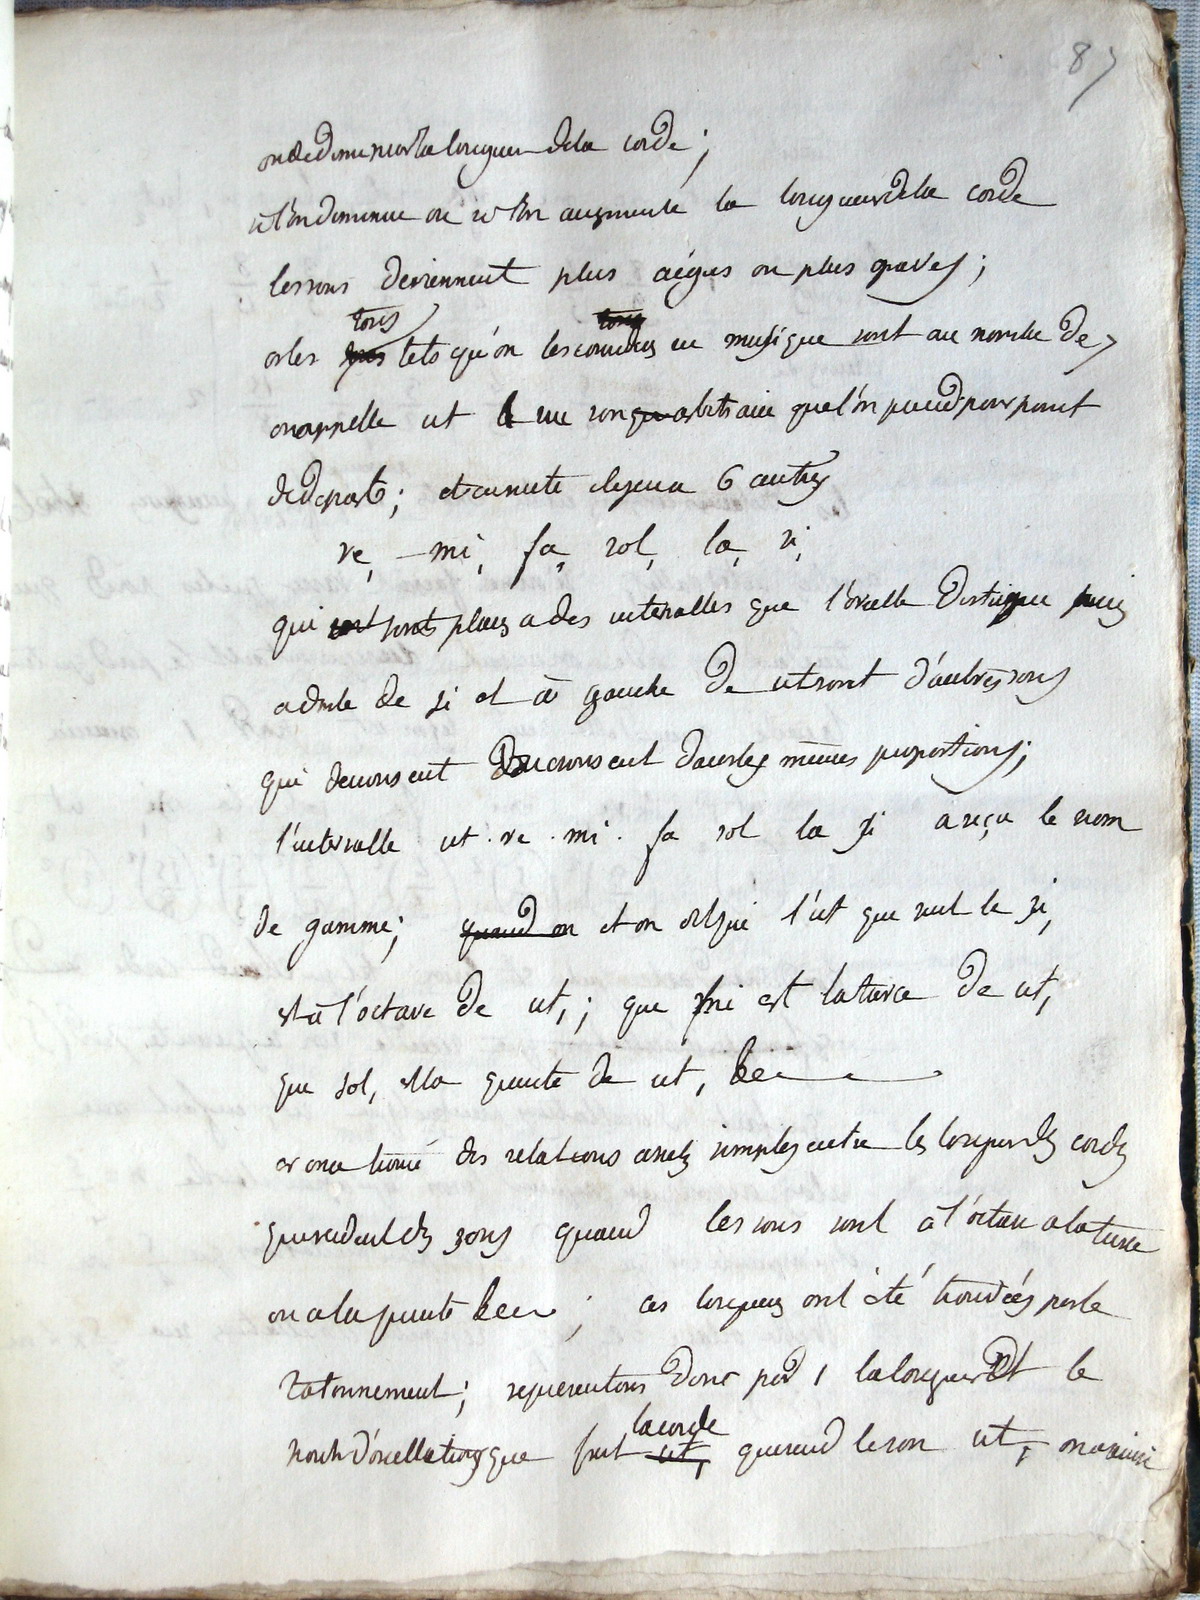 87
la longueur de la corde ;
si l'on diminue ou si l'on augmente la longueur de la corde
les sons deviennent plus aigus ou plus graves ;
tons
or les tels qu'on les en musique sont au nombre de 7
on appelle ut un son arbitraire que l'on prend pour point
de depart ; et ensuite 6 autres
re, mi, fa, sol, la, si,
qui sont placés a des intervalles que l'oreille distingue
a droite de si et à gauche de ut sont d'autres sons
qui mêmes proportions ;
l'intervalle ut . re . mi . fa sol la si a reçu le nom
de gamme ; quand on et on dit que l'ut que suit le si,
est à l'octave de ut, ; que mi est la tierce de ut,
que sol, est la quinte de ut,
or on a trouvé des relations assez simples entre les longueurs des cordes
qui rendent des sons quand les sons sont a l'octave a la tierce
ou a la quinte ; ces longueurs ont été trouvées par le
tatonnement ; representons donc par 1 la longueur et le
la corde
nomb d'oscillations que fait ut, qui rend le son ut, on a ainsi